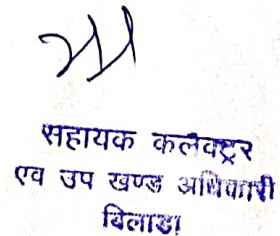 सहायक कलक्ट्रर
एव उप खण्ड अधिकारी
बिलाडा